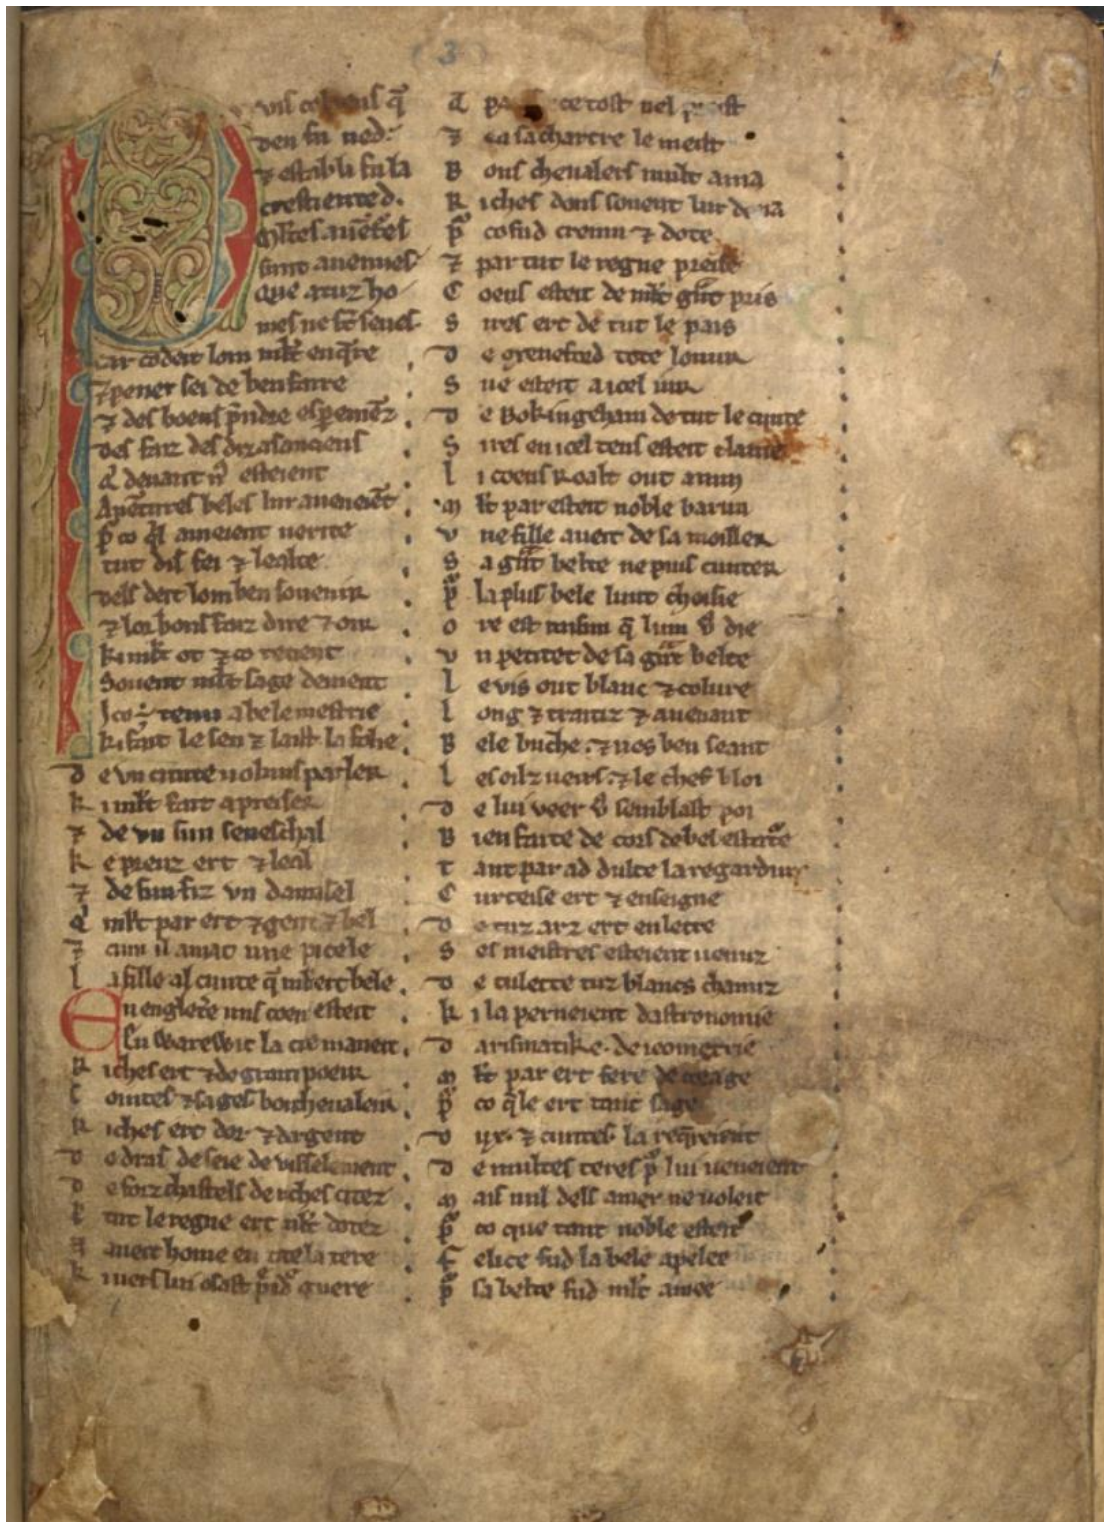 3
1
vis cel tens q̄
deu fu ned.
⁊ establi fu la
crestiented.
Mltes auētes
sunt auenues
Que a tuz ho
mes ne st̄ seues
Car co deit lom ml̄t enq̄re
⁊ pener sei de ben faire
⁊ des boens p̄ndre espemēz
des faiz des diz as anciens
q̉ deuant n̉ esteient
Auētures beles lur aueneiēt
p̄ co q̉l ameient uerite
tut dis fei ⁊ lealte
dels deit lom ben souenir
⁊ lor bons faiz dire ⁊ oir
ki ml̄t ot ⁊ co retient
Souent ml̄t sage deuient
I co ÷ tenu a bele mestrie
ki fait le sen ⁊ laist la folie
d e un cunte uolum parler
k i ml̄t fait a preiser
⁊ de vn sun seneschal
k e preuz ert ⁊ leal
⁊ de sun fiz vn damisel
q̉ ml̄t par ert ⁊ gent ⁊ bel
⁊ cum il amat une pucele
l a fille al cunte q̄ ml̄t ert bele
En englet̄e uns coens esteit
En Warewic la cite maneit
R iches ert ⁊ de grant poeir
C ointes ⁊ sages bon cheualeir
R iches ert dor ⁊ dargent
d e dras de seie de vesselement
d e forz chastels de riches citez
P tut le regne ert ml̄t dotez
N aueit home en tote la tere
k uers lui osast p̄ndr̄ guere
Q pa ce tost uel prest
⁊ en sa chartre le meist
B ons cheualers mult ama
R iches dons souent lur dona
p̄ co fud cremu ⁊ dote
⁊ par tut le regne preise
C oens esteit de ml̄t gr̄nt pris
S ires ert de tut le pais
d e grenefted tote lonur
S ue esteit a icel iur
d e Bokingeham de tut le cunte
S ires en icel tens esteit clame
l i coens Roalt out anun
M l̄t par esteit noble barun
V ne fille aueit de sa moiller
S a gr̄nt belte ne puis cunter
p̄ la plus bele lunt choisie
o re est raisun q̄ lum v̉ die
v n petitet de sa gr̄nt belte
l e vis out blanc ⁊ colure
l ong ⁊ traitiz ⁊ auenant
B ele buche . ⁊ nes ben seant
l es oilz ueirs . ⁊ le chef bloi
d e lui veer v̉ semblast poi
B ien faite de cors de bel estature
T ant par ad dulce la regardure
C urteise ert ⁊ enseigne
d e tuz arz ert enlette
S es meistres esteient uenuz
d e tulette tuz blancs chanuz
k i la perneient dastronomie
d arismatike . de ieometrie
M l̄t par ert fere de corage
p̄ co q̄le ert tant sage
d ux . ⁊ cuntes . la req̄reient
d e multes teres p̄ lui ueneient
M ais nul dels amer ne uoleit
p̄ co que tant noble esteit
F elice fud la bele apelee
p̄ sa belte fud ml̄t amee